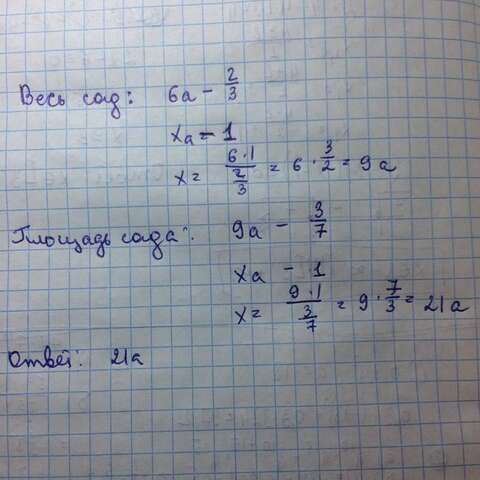 Весь сад: 6а - 2/3
xа - 1
x = (6·1)/(2/3) = 6 · 3/2 = 9а
Площадь сада: 9а - 3/7
xа - 1
x = (9·1)/(3/7) = 9 · 7/3 = 21а
Ответ: 21а